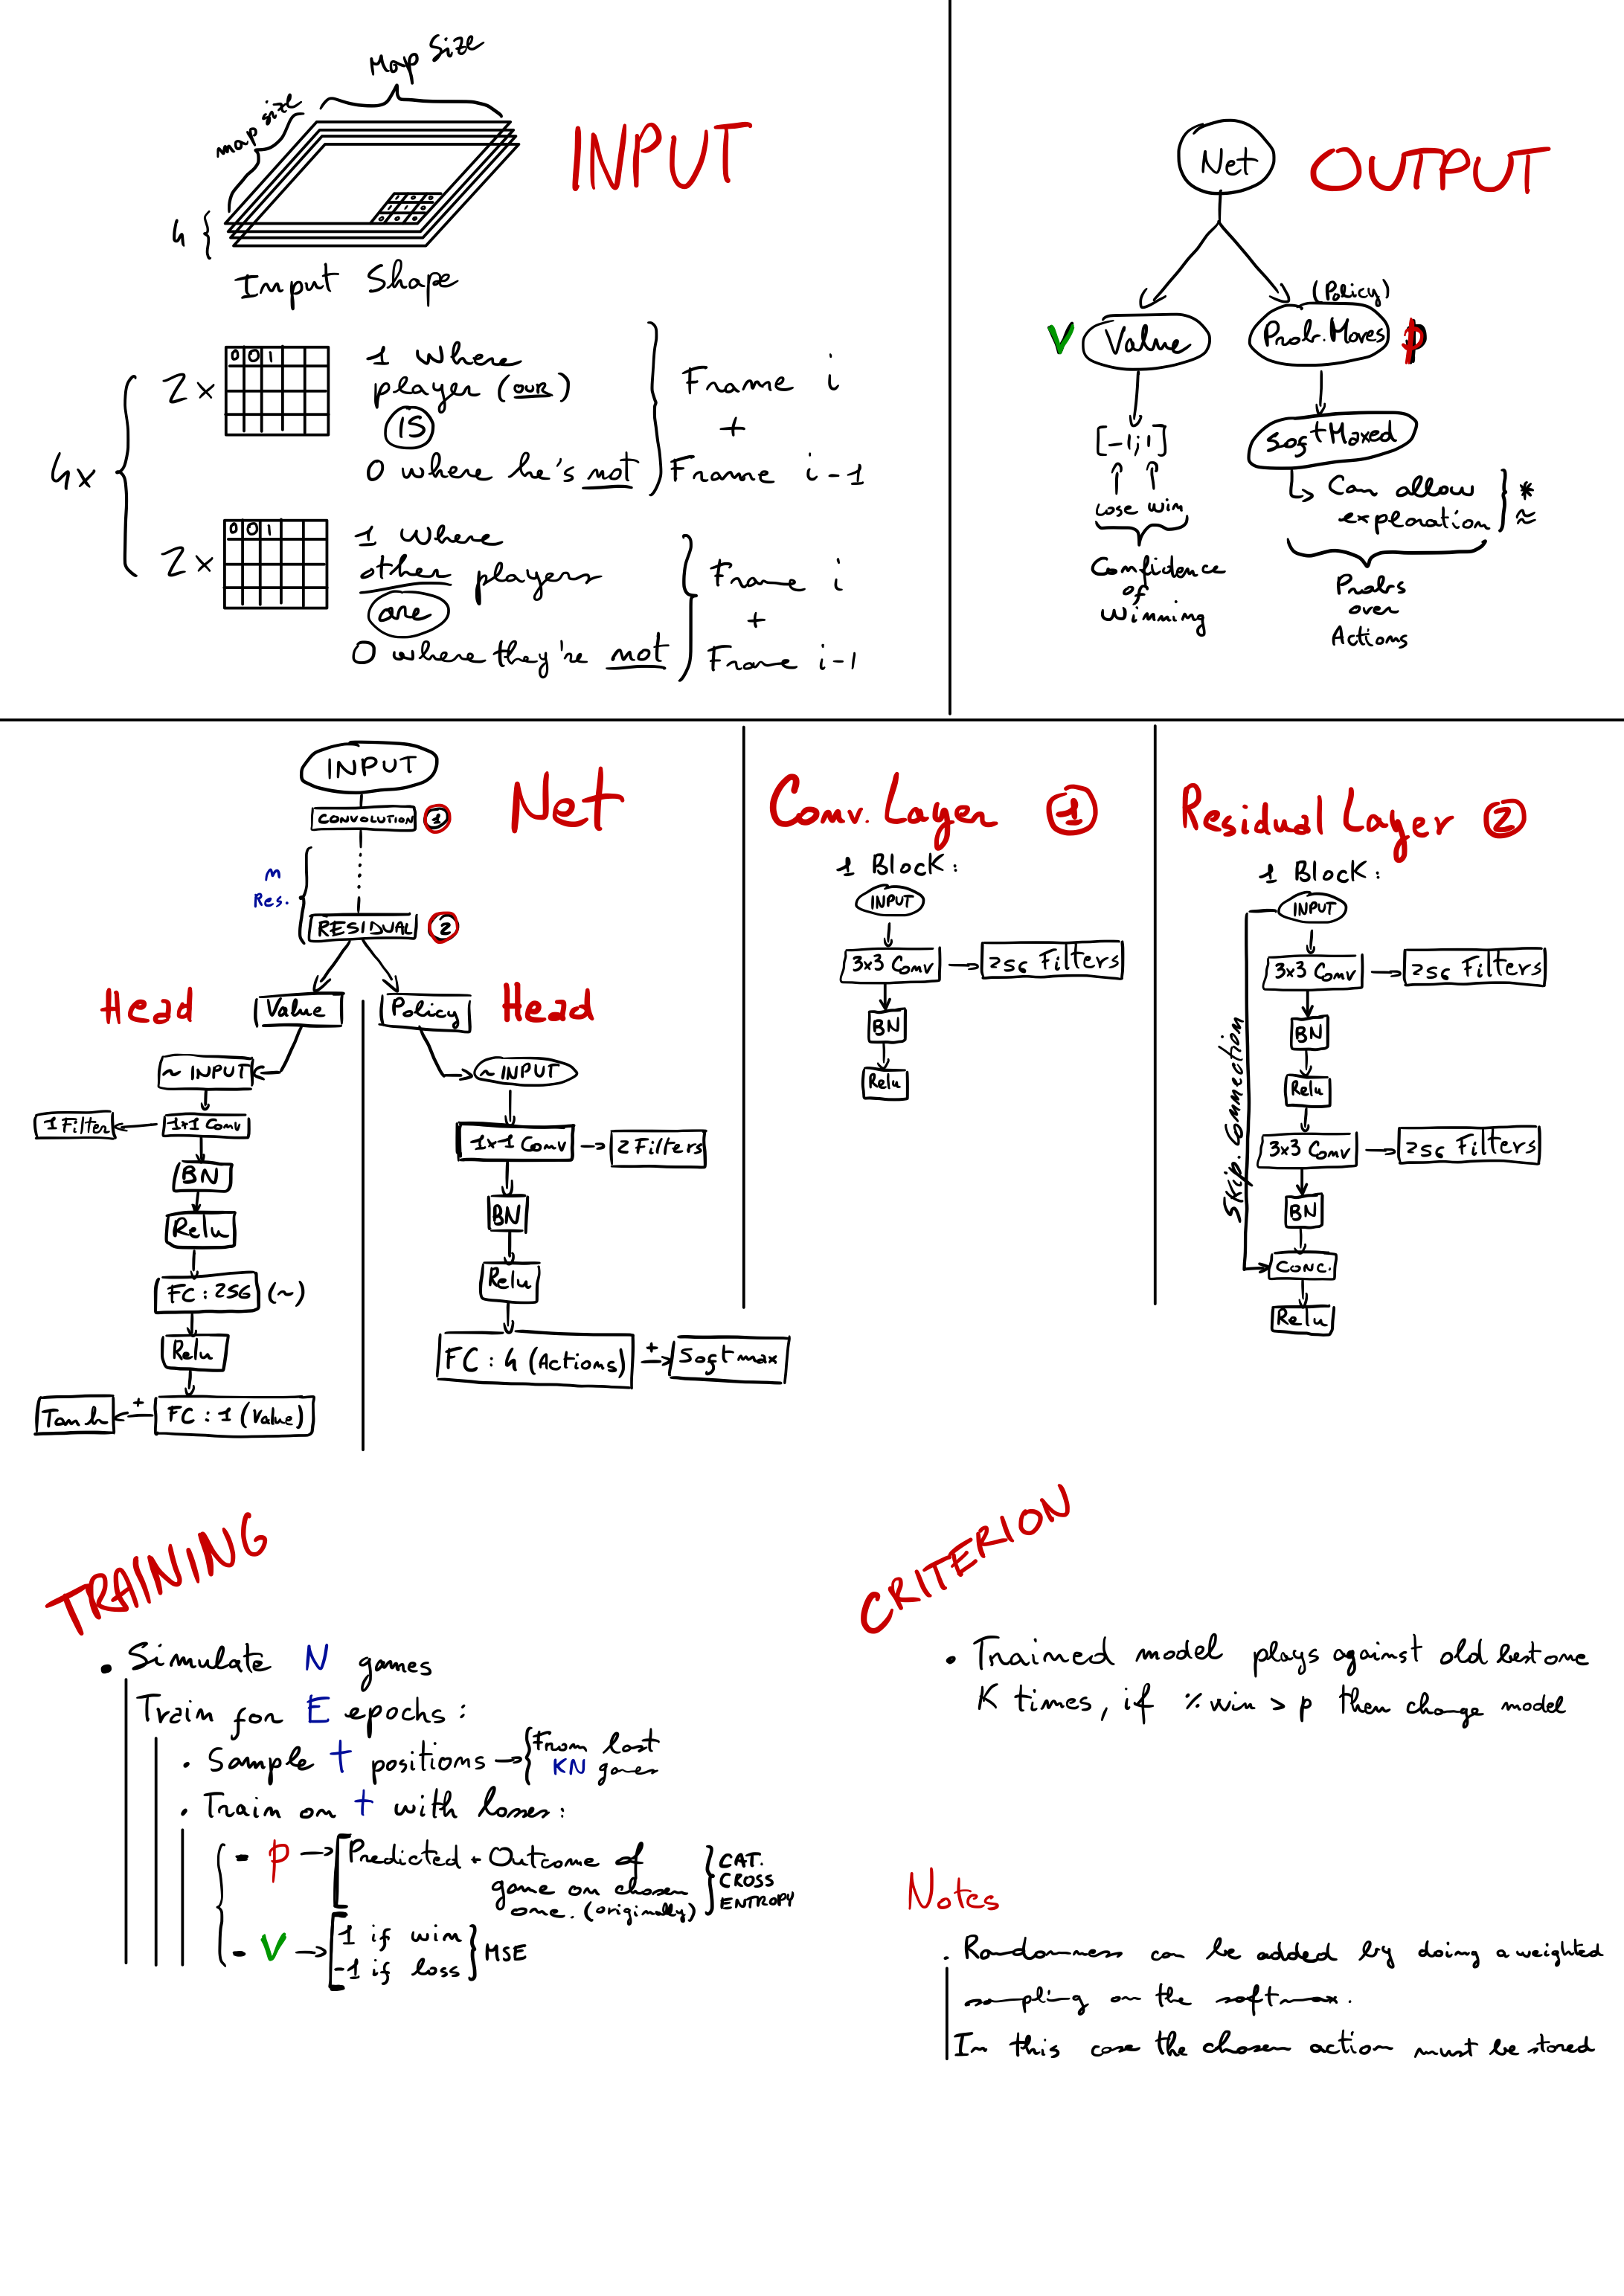 Map Size
map size
INPUT
1 0 0
1 1 0
0 0 0
4
Input Shape
4x
2x
0 0 1
1 Where
player (our)
IS
0 where he's not
Frame i
+
Frame i-1
2x
0 0 1
1 Where
other players
are
0 where they're not
Frame i
+
Frame i-1
Net
OUTPUT
V
Value
(Policy)
Prob. Moves
p
[-1;1]
Lose win
Confidence
of
Winning
SoftMaxed
Can allow
exploration
*
≈
Probs
over
Actions
INPUT
Net
CONVOLUTION
1
m
Res.
RESIDUAL
2
Head
Value
Policy
Head
~ INPUT
1 Filter
1x1 Conv
BN
Relu
FC : 256 (~)
Relu
FC : 1 (Value)
+
Tanh
~ INPUT
1x1 Conv
2 Filters
BN
Relu
FC : 4 (Actions)
+
Softmax
Conv. Layer 1
1 Block :
INPUT
3x3 Conv
256 Filters
BN
Relu
Residual Layer 2
1 Block :
INPUT
3x3 Conv
256 Filters
BN
Relu
3x3 Conv
256 Filters
BN
CONC.
Relu
Skip. Connection
TRAINING
• Simulate N games
Train for E epochs :
• Sample t positions
From last
KN games
• Train on t with losses :
- p
Predicted - Outcome of
game on chosen
one. (originally)
CAT.
CROSS
ENTROPY
- V
1 if win
-1 if loss
MSE
CRITERION
• Trained model plays against old best one
K times, if % win > p then change model
Notes
• Randomness can be added by doing a weighted
sampling on the softmax.
In this case the chosen action must be stored